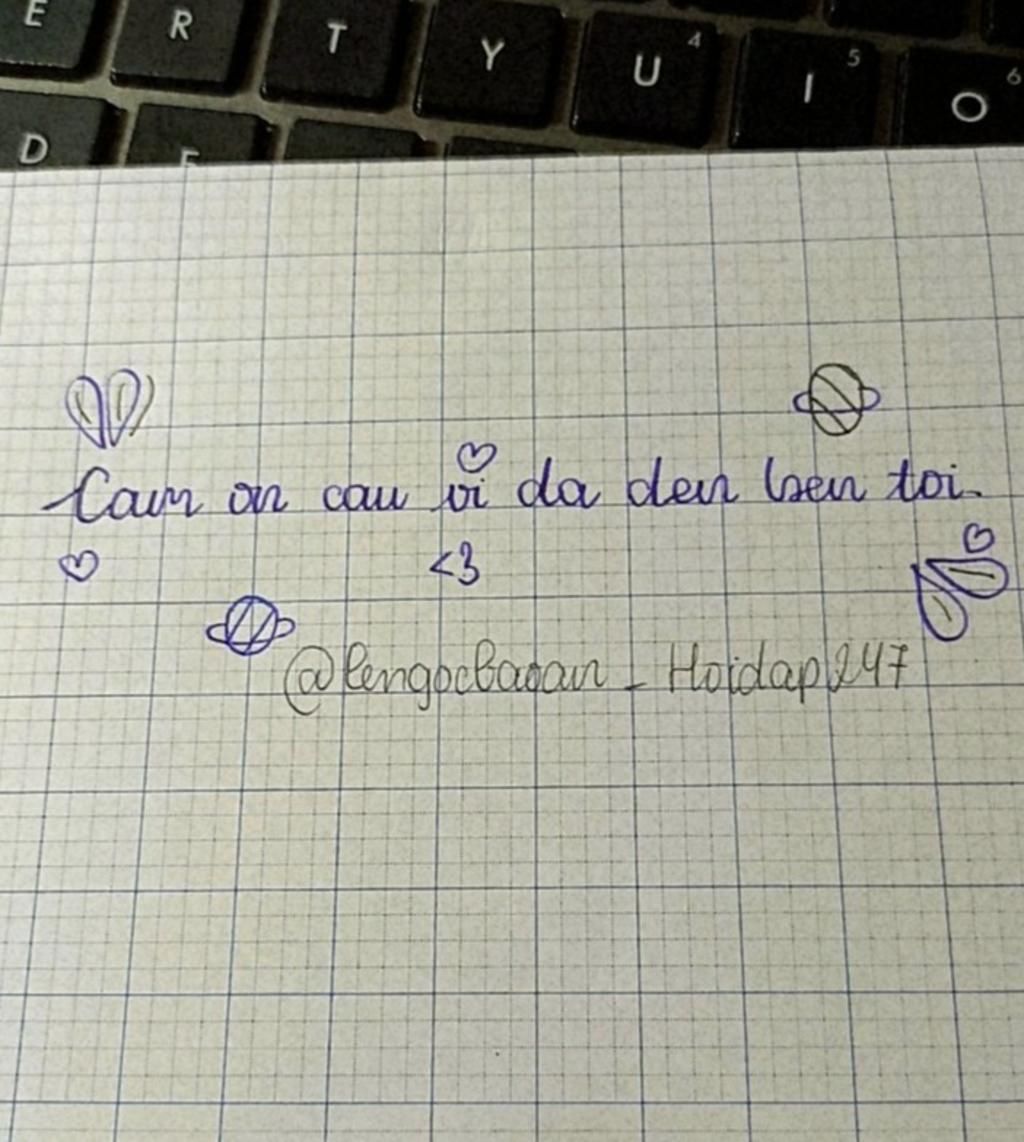 E R T Y U 4 I 5 O 6
D F
Cam on cau vi da den ben toi.
<3
@lengocbaoan _ Hoidap247